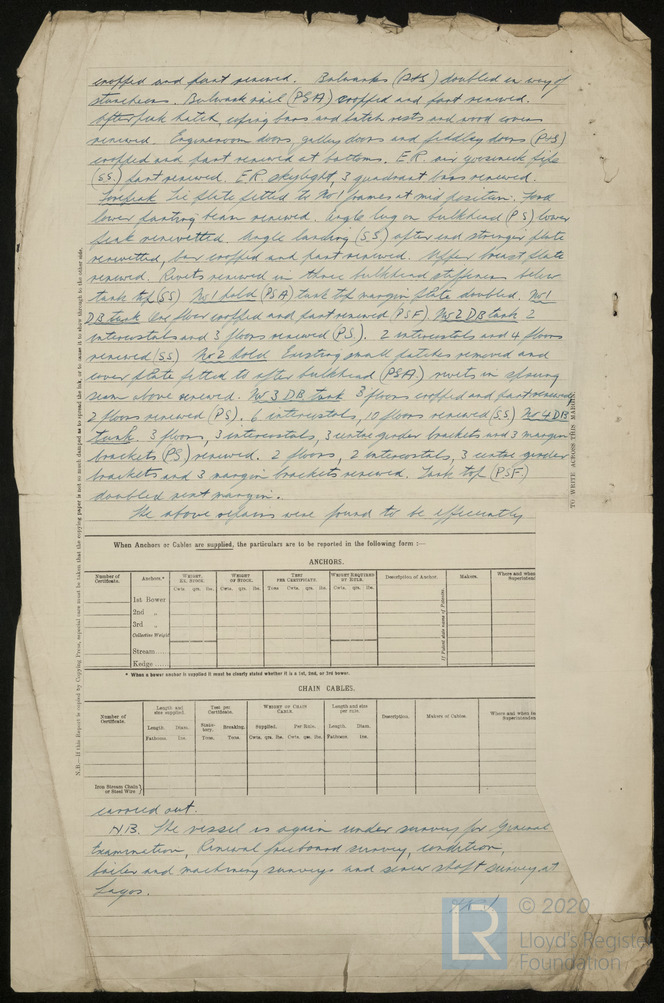 cropped and part renewed. Bulwarks (P&S) doubled in way of
stancheons. Bulwark rail (PSA) cropped and part renewed.
After peak hatch, coping bars and hatch rests and wood covers
renewed. Engineroom doors, galley doors and fiddley doors (P&S)
cropped and part renewed at bottoms. E.R. air gooseneck side
(SS) part renewed. E.R. skylight, 3 quadrant bars renewed.
Forepeak Tie plate fitted to No 1 frames at mid position. Ford
lower panting beam renewed. Angle lug on bulkhead (PS) lower
peak renewetted. Angle landing (SS) after end stringer plate
renewetted, bar cropped and part renewed. Upper breast plate
renewed. Rivets renewed in three bulkhead stiffeners below
tank top (SS) No 1 hold (PSA) tank top margin plate doubled. No 1
DB tank One floor cropped and part renewed (PSF). No 2 DB tank 2
intercostals and 3 floors renewed (PS). 2 intercostals and 4 floors
renewed (SS) No 2 hold Existing small patches removed and
cover plate fitted to after bulkhead (PSA.) rivets in
seam above renewed. No 3 DB tank 3 floors cropped and part renewed
2 floors renewed (PS). 6 intercostals, 10 floors renewed (SS) No 4 DB
tank. 3 floors, 3 intercostals, 3 centre girder brackets and 3 margin
brackets (PS) renewed. 2 floors, 2 intercostals, 3 centre girder
brackets and 3 margin brackets renewed. Tank top (PSF)
doubled next margin.
The above repairs were found to be efficiently
When Anchors or Cables are supplied, the particulars are to be reported in the following form :—
ANCHORS.
Number of Certificate. Anchors.* Weight, Ex. Stock. Weight of Stock. Test per Certificate. Weight Required by Rule. Description of Anchor. Makers. Where and when
Superintend
Cwts. qrs. lbs. Cwts. qrs. lbs. Tons. Cwts. qrs. lbs. Cwts. qrs. lbs.
1st Bower
2nd „
3rd „
Collective Weight
Stream
Kedge
If Patent state name of Patentee.
* When a bower anchor is supplied it must be clearly stated whether it is a 1st, 2nd, or 3rd bower.
CHAIN CABLES.
Number of Certificate. Length and size supplied. Test per Certificate. Weight of Chain Cable. Length and size per rule. Description. Makers of Cables. Where and when
Superintenden
Length. Diam. Statutory. Breaking. Supplied. Per Rule. Length. Diam.
Fathoms. Ins. Tons. Tons. Cwts. qrs. lbs. Cwts. qrs. lbs. Fathoms. Ins.
Iron Stream Chain
or Steel Wire
carried out.
N.B. The vessel is again under survey for General
Examination, Renewal freeboard survey, condition,
boiler and machinery surveys and screw shaft survey at
Lagos.
N.B.—If this Report is copied by Copying Press, especial care must be taken that the copying paper is not so much damped as to spread the ink, or to cause it to show through to the other side.
TO WRITE ACROSS THIS MARGIN.
LR
© 2020
Lloyd's Register
Foundation